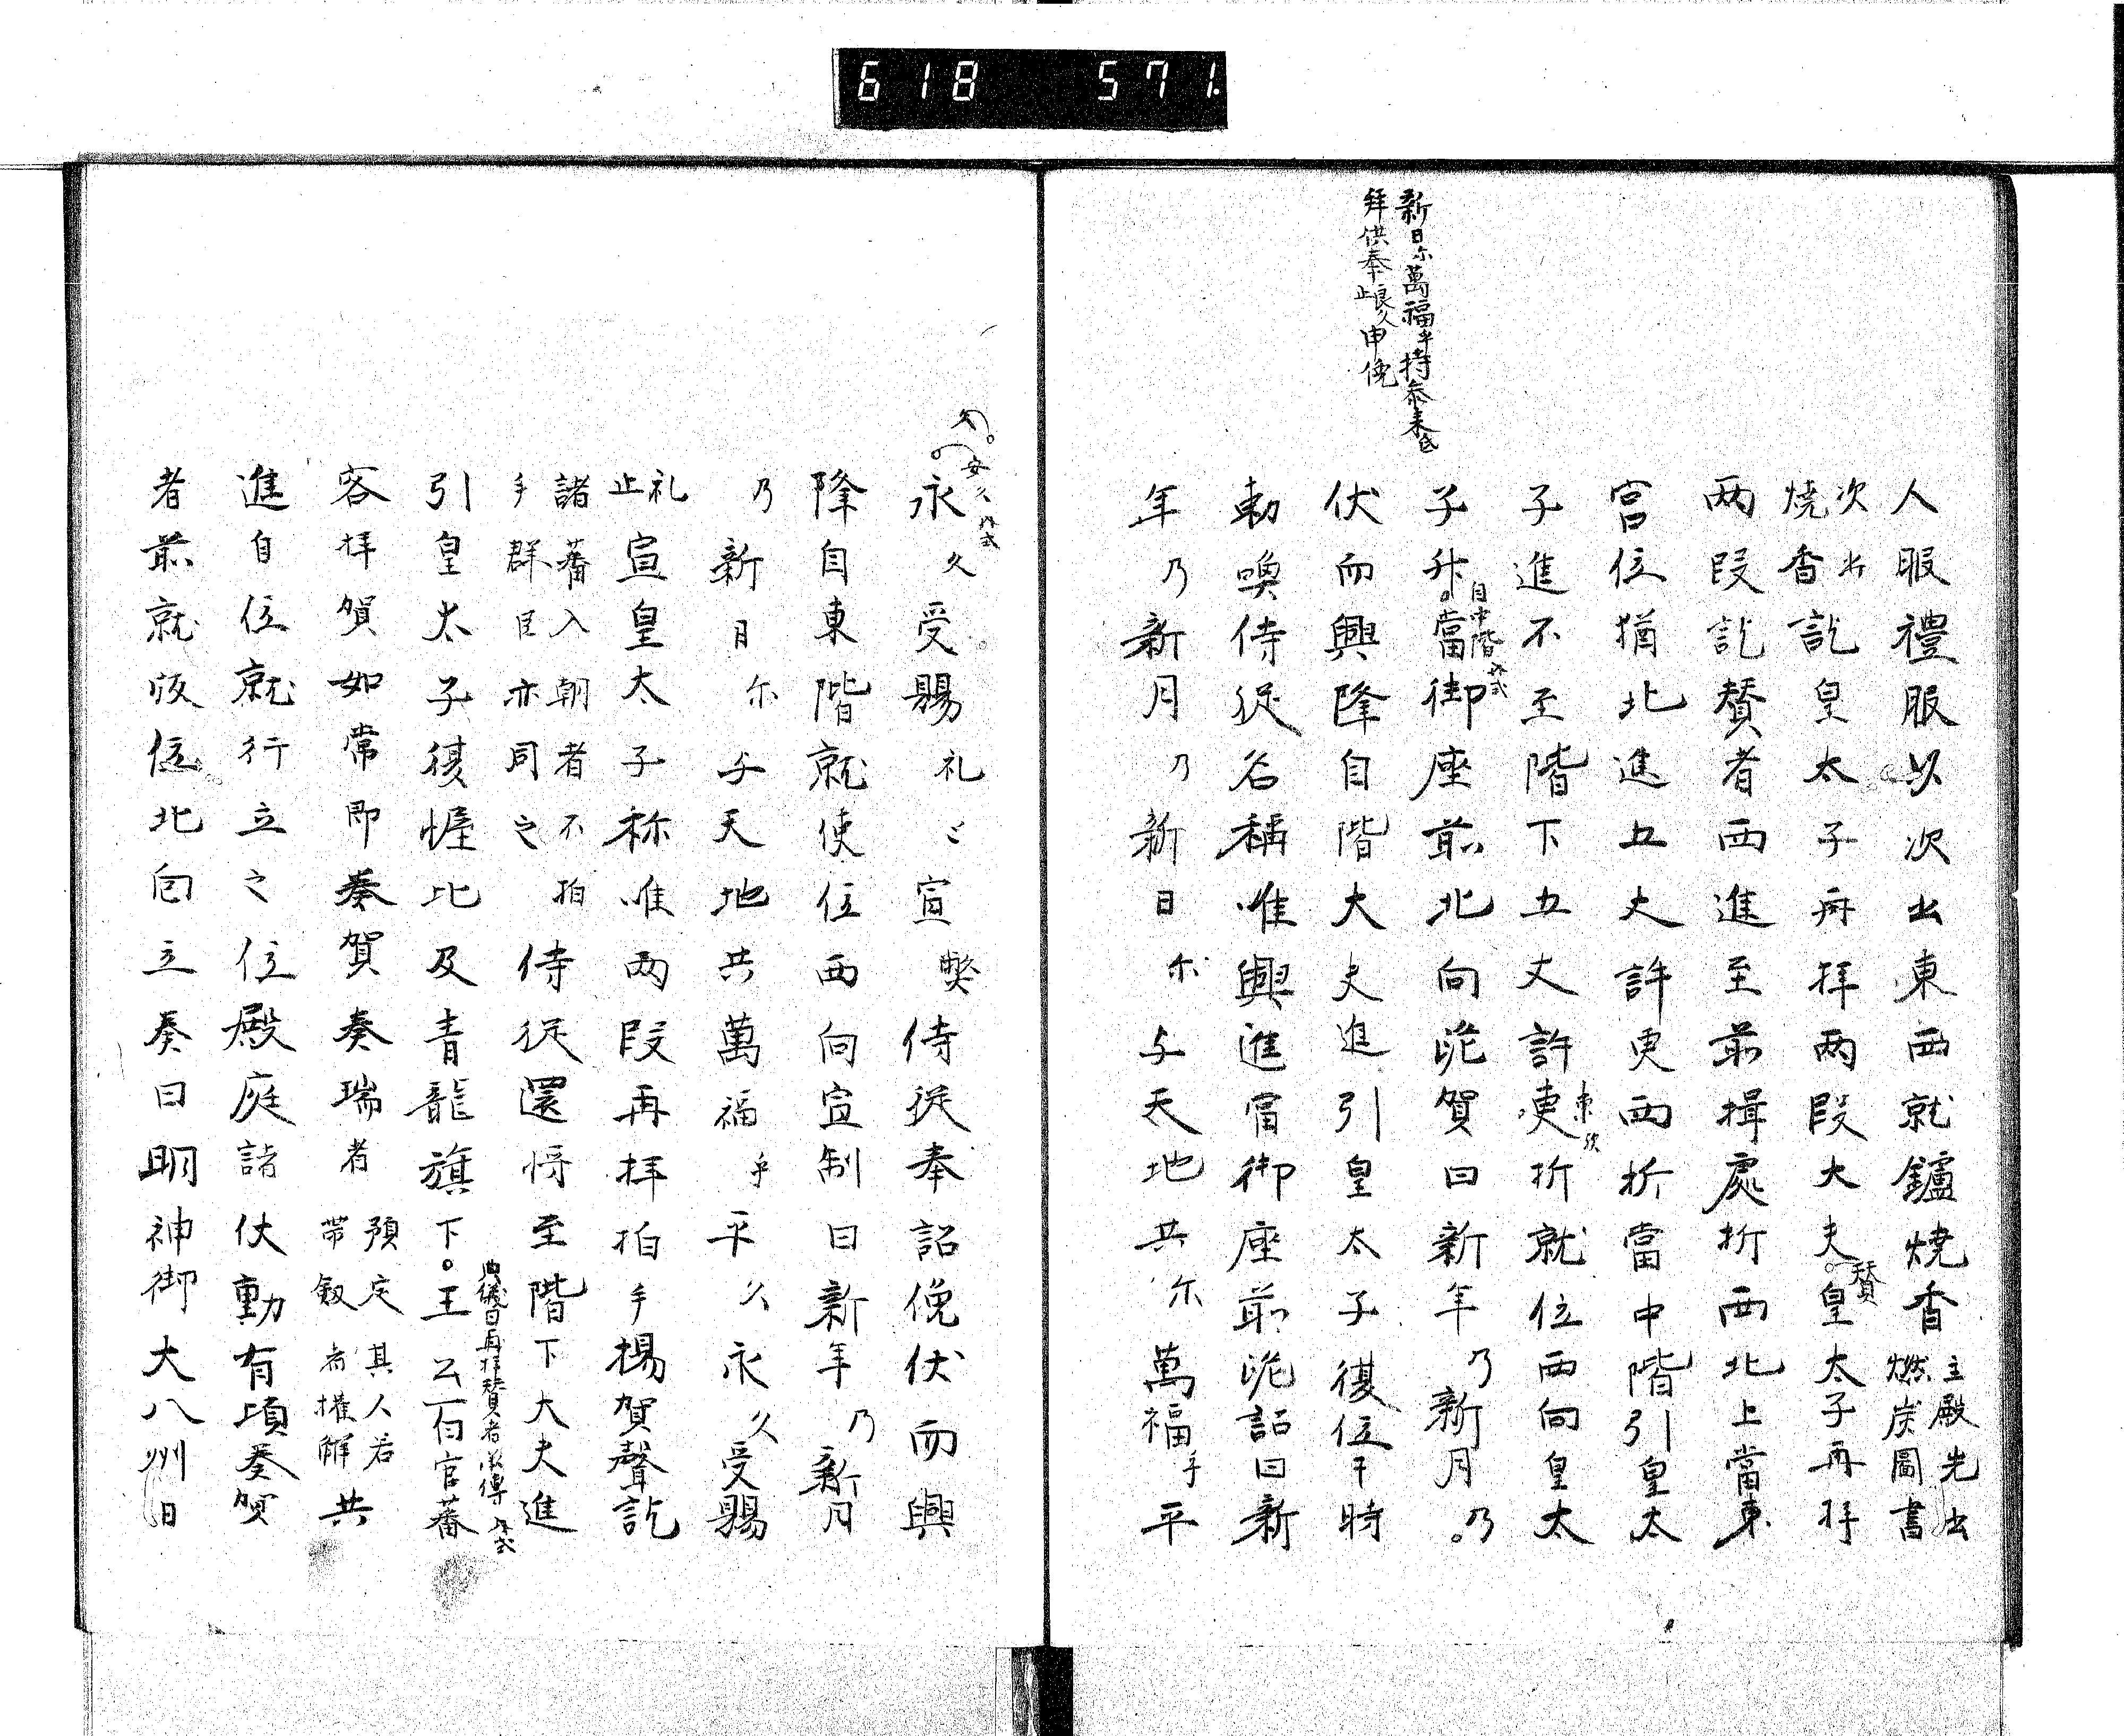 618 571.
新日尓萬福乎持参来弖
拜供奉良久止申俛
人服禮服以次出東西就鑪燒香主殿先出燃炭圖書
次出燒香訖皇太子再拜兩段大夫賛皇太子再拜
兩段訖賛者西進至前揖處折西北上當東
宮位猶北進五丈許更西折當中階引皇太
子進不至階下五丈許更東歟折就位西向皇太
子升自中階式當御座前北向跪賀曰新年乃新月乃
伏而興降自階大夫進引皇太子復位干時
勅喚侍從名稱唯興進當御座前跪詔曰新
年乃新月乃新日尓与天地共尓萬福乎平
久安久式
永久受賜礼止宣獘侍從奉詔俛伏而興
降自東階就使位西向宣制曰新年乃新月
乃新日尓与天地共萬福乎平久永久受賜
礼止宣皇太子称唯兩段再拜拍手揚賀聲訖
諸蕃入朝者不拍手群臣亦同之侍從還將至階下大夫進
引皇太子復幄比及青龍旗下王公百官蕃
典儀曰再拜賛者承傳式
客拜賀如常即奏賀奏瑞者預定其人若帶釼者權解共
進自位就行立之位殿庭諸仗動有頃奏賀
者前就版位北向立奏曰明神御大八州日